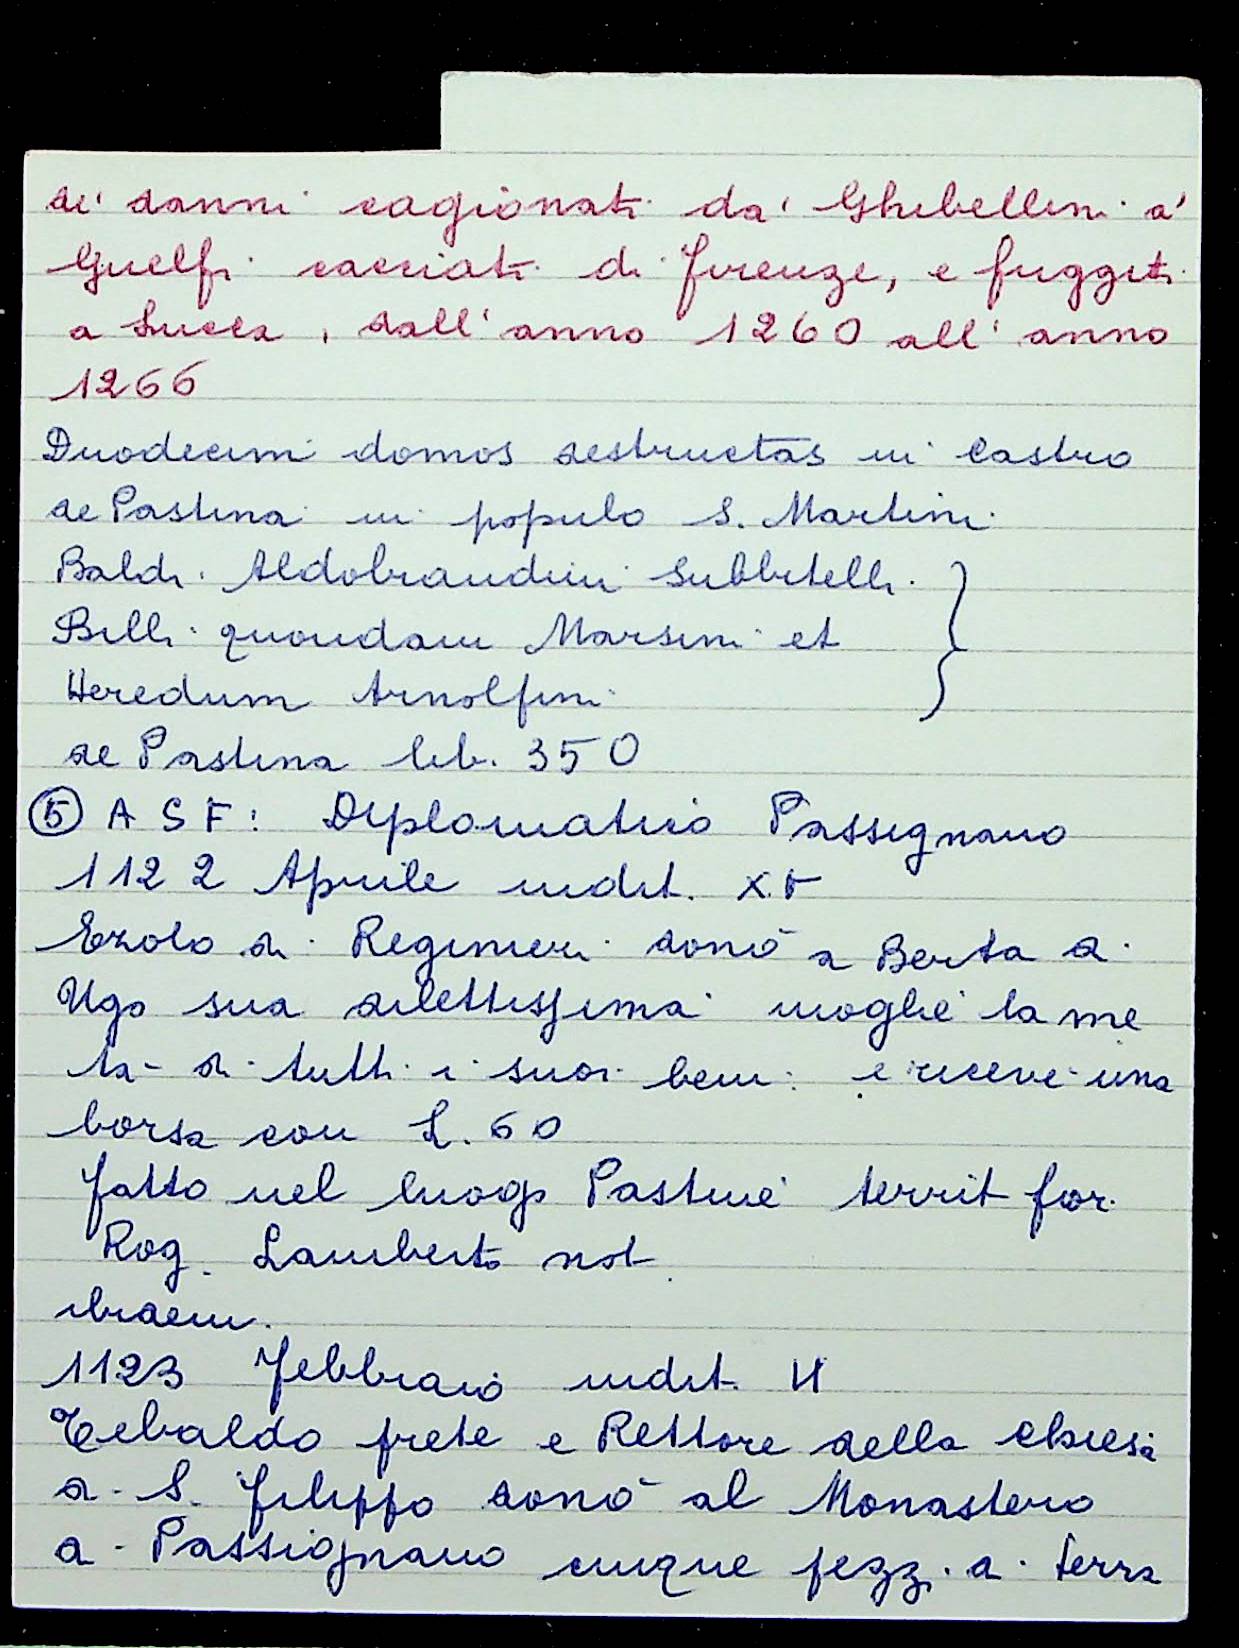 de' danni cagionati da' Ghibellini a'
Guelfi cacciati di Firenze, e fuggiti
a Lucca, dall'anno 1260 all'anno
1266
Duodecim domos destructas in Castro
de Pastina in populo S. Martini
Baldi Aldobrandini Subbitelli }
Billi quondam Marsini et
Heredum Arnolfini
de Pastina lib. 350
⑤ A S F: Diplomatico Passignano
1122 Aprile indit. XV
di Regimieri donò a Berta di
Ugo sua dilettissima moglie la me
tà di tutti i suoi beni e riceve una
borsa con L. 60
fatto nel luogo Pastine territ fior.
Rog. Lamberto not
ibidem.
1123 Febbraio indit.
Tebaldo prete e Rettore della chiesa
di S. Filippo donò al Monastero
di Passignano cinque pezzi di terra